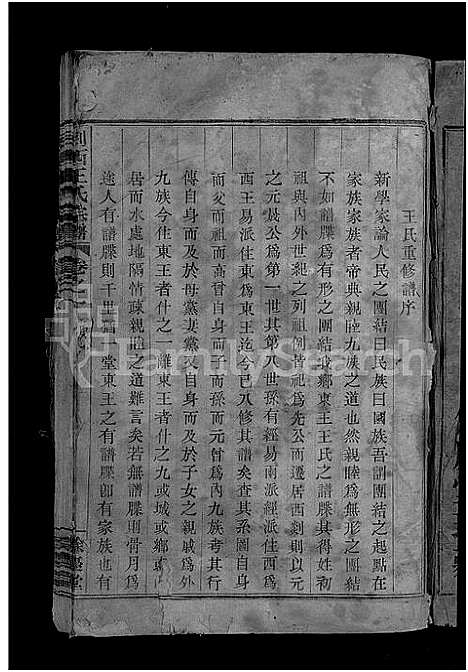 王氏重修譜序
新學家論人民之團結曰民族曰國族吾謂團結之起點在
家族家族者帝典親睦九族之道也然親睦爲無形之團結
不如譜牒爲有形之團結我鄉東王王氏之譜牒其得姓初
祖與內外世紀之列祖例皆祀爲先公而遷居西剡則以元
之元晟公爲第一世其第八世孫有經易兩派經派住西爲
西王易派住東爲東王迄今已八修其譜矣查其系圖自身
而父而祖而高曾自身而子而孫而元曾爲內九族考其行
傳自身而及於母黨妻黨自身而及於子女之親戚爲外
九族今住東王者什之一離東王者什之九或城或鄉或
居而水處地隔情疎親睦之道難言矣若無譜牒則骨月爲
途人有譜牒則千里 一堂東王之有譜牒卽有家族也有
王氏宗譜
卷之一
餘慶堂
FamilySearch